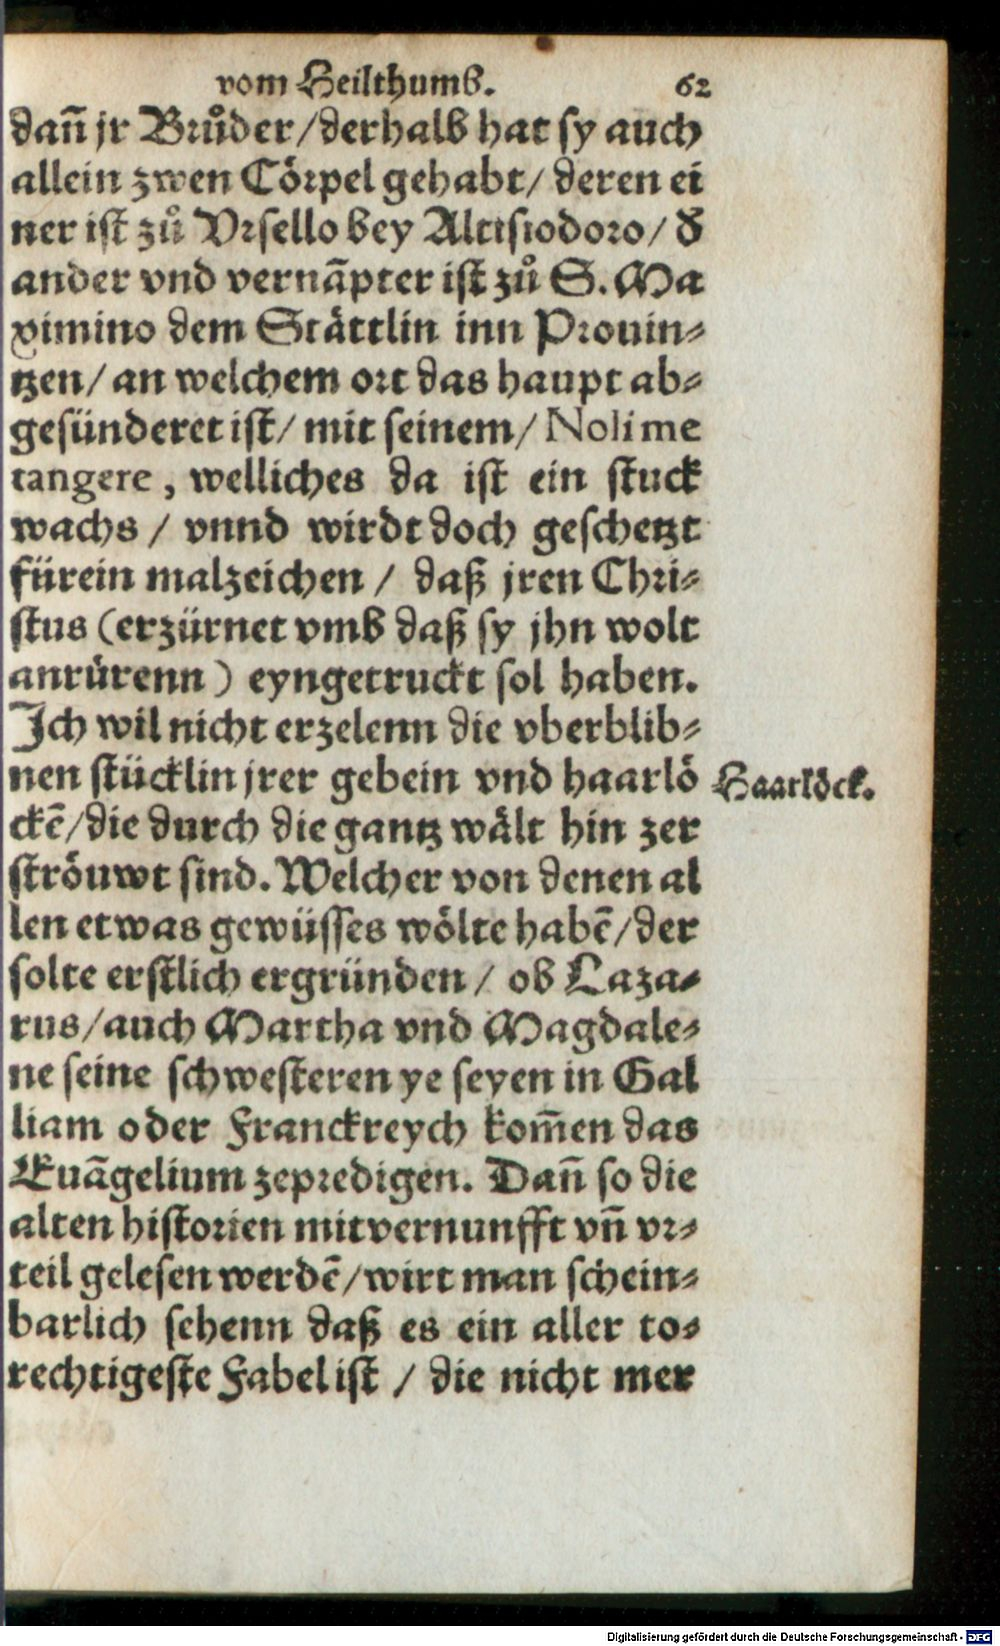 vom Heilthumb. 62
dañ jr Bruͦder/derhalb hat sy auch
allein zwen Cörpel gehabt/ deren ei
ner ist zuͦ Vrsello bey Altisiodoro/ d̕
ander vnd vernãpter ist zuͦ S. Ma
ximino dem Stättlin inn Prouin-
tzen/ an welchem ort das haupt ab-
gesünderet ist/ mit seinem/ Noli me
tangere, welliches da ist ein stuck
wachs / vnnd wirdt doch geschetzt
fürein malzeichen / daß jren Chri-
stus (erzürnet vmb daß sy jhn wolt
anrürenn) eyngetruckt sol haben.
Ich wil nicht erzelenn die vberblib-
nen stücklin jrer gebein vnd haarlö
ckẽ/die durch die gantz wält hin zer
ströuwt sind. Welcher von denen al
len etwas gewüsses wölte habẽ/der
solte erstlich ergründen / ob Laza-
rus/auch Martha vnd Magdale-
ne seine schwesteren ye seyen in Gal
liam oder Franckreych kom̃en das
Euãgelium zepredigen. Dañ so die
alten historien mit vernunfft vñ vr-
teil gelesen werdẽ/wirt man schein-
barlich sehenn daß es ein aller to-
rechtigeste Fabel ist / die nicht mer
Haarlöck.
Digitalisierung gefördert durch die Deutsche Forschungsgemeinschaft - DFG